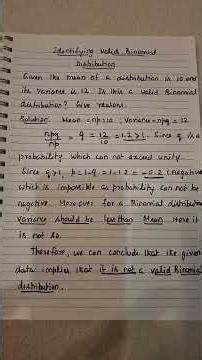 Identifying Valid Binomial
Distribution
Given the mean of a distribution is 10 and
its variance is 12. Is this a valid Binomial
distribution? Give reasons.
Solution: Mean = np = 10 ; Variance = npq = 12
npq/np = q = 12/10 = 1.2 > 1. Since q is a
probability which can not exceed unity.
Since q>1, p = 1-q = 1-1.2 = -0.2 (negative
which is impossible as probability can not be
negative. More over for a Binomial distribution
Variance should be less than Mean. Here it
is not so.
Therefore, we can conclude that the given
data implies that it is not a valid Binomial
distribution.